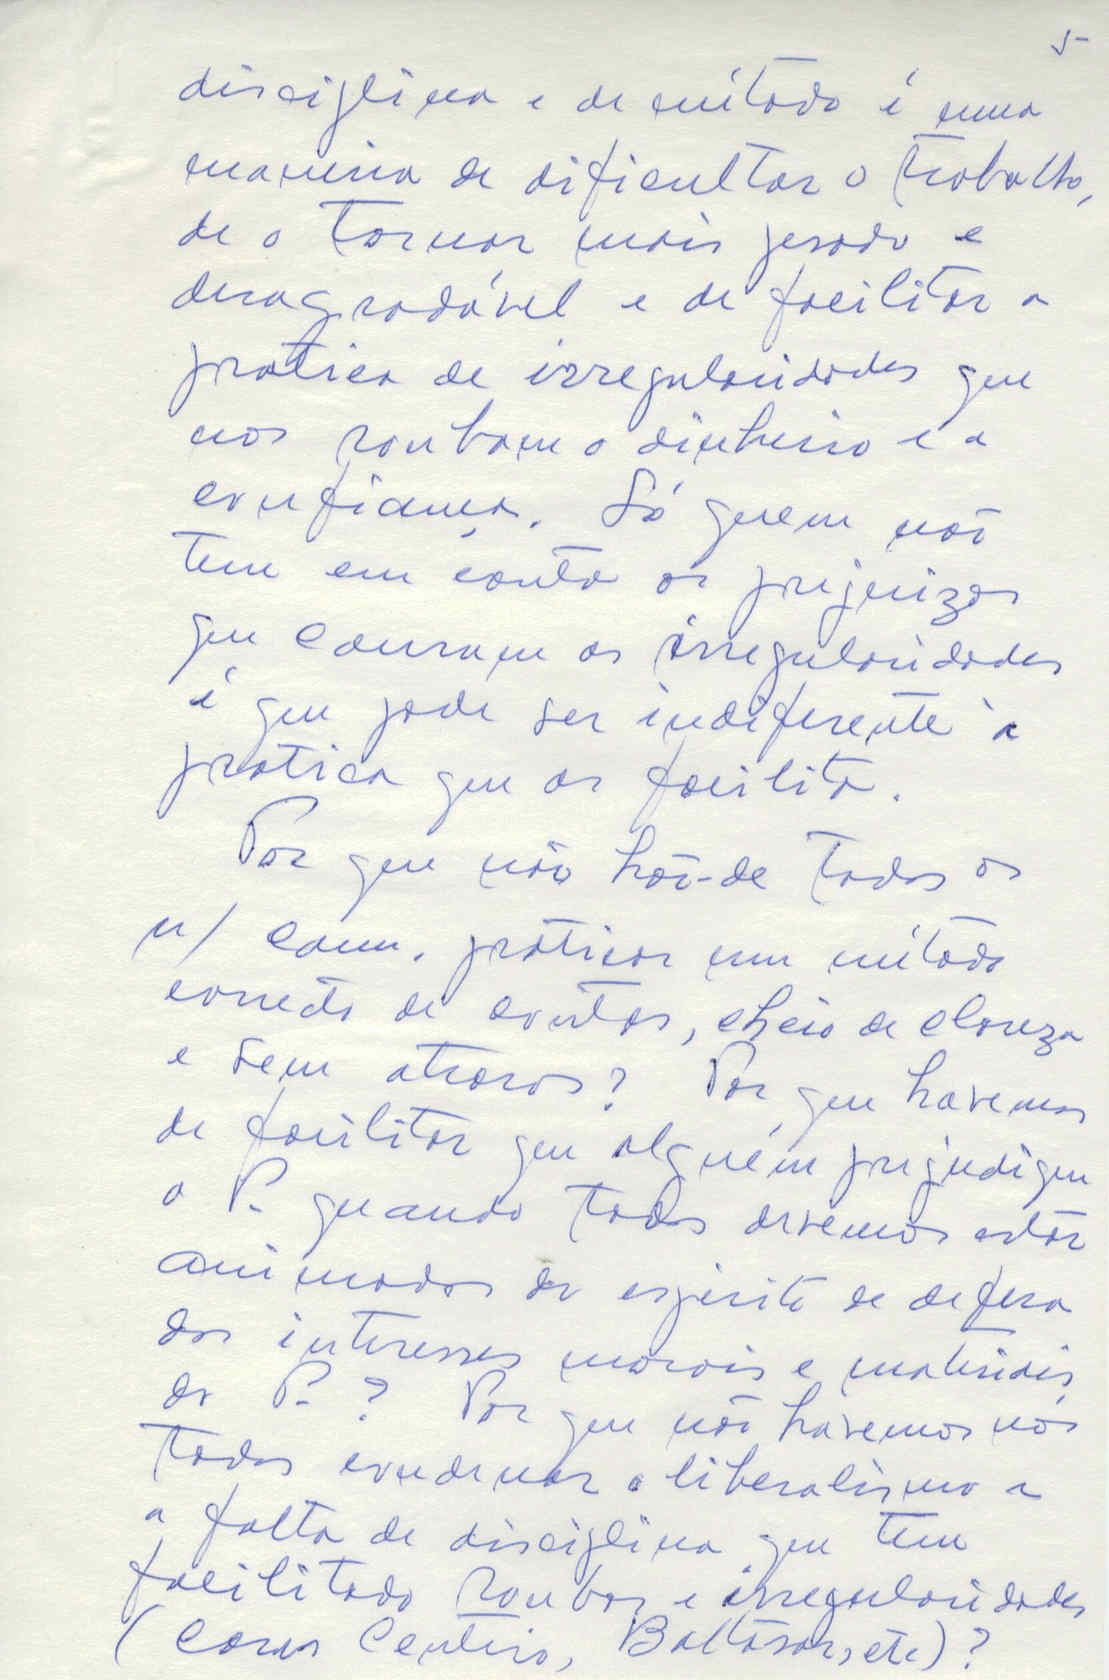 5
disciplina e de método é uma
maneira de dificultar o trabalho,
de o tornar mais pesado e
desagradável e de facilitar a
pratica de irregularidades que
nos roubam o dinheiro e a
confiança. Só quem não
tem em conta os prejuizos
que causam as irregularidades
é que pode ser indiferente à
pratica que as facilita.
Por que não hão-de todos os
n/ cam. praticar um método
correcto de contas, cheio de clareza
e sem atrasos? Por que havemos
de facilitar que alguém prejudique
o P. quando todos devemos estar
animados do espirito de defesa
dos interesses morais e materiais
do P.? Por que não havemos nós
todos condenar o liberalismo e
a falta de disciplina que tem
facilitado roubos e irregularidades
(casos Centeio, Baltasar, etc)?